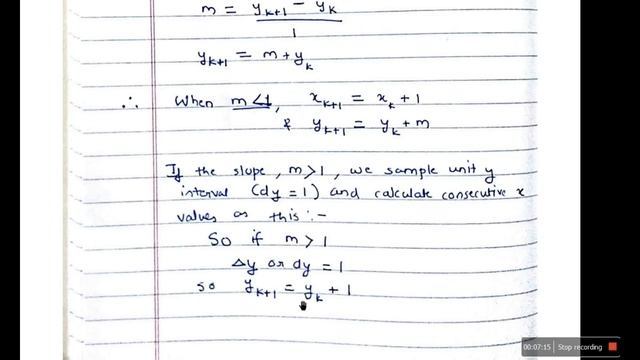 m = y_{k+1} - y_k
1
y_{k+1} = m + y_k
∴ When m<1, x_{k+1} = x_k + 1
& y_{k+1} = y_k + m
If the slope, m>1, we sample unit y
interval (dy = 1) and calculate consecutive x
values as this :-
So if m > 1
Δy or dy = 1
so y_{k+1} = y_k + 1
00:07:15 Stop recording